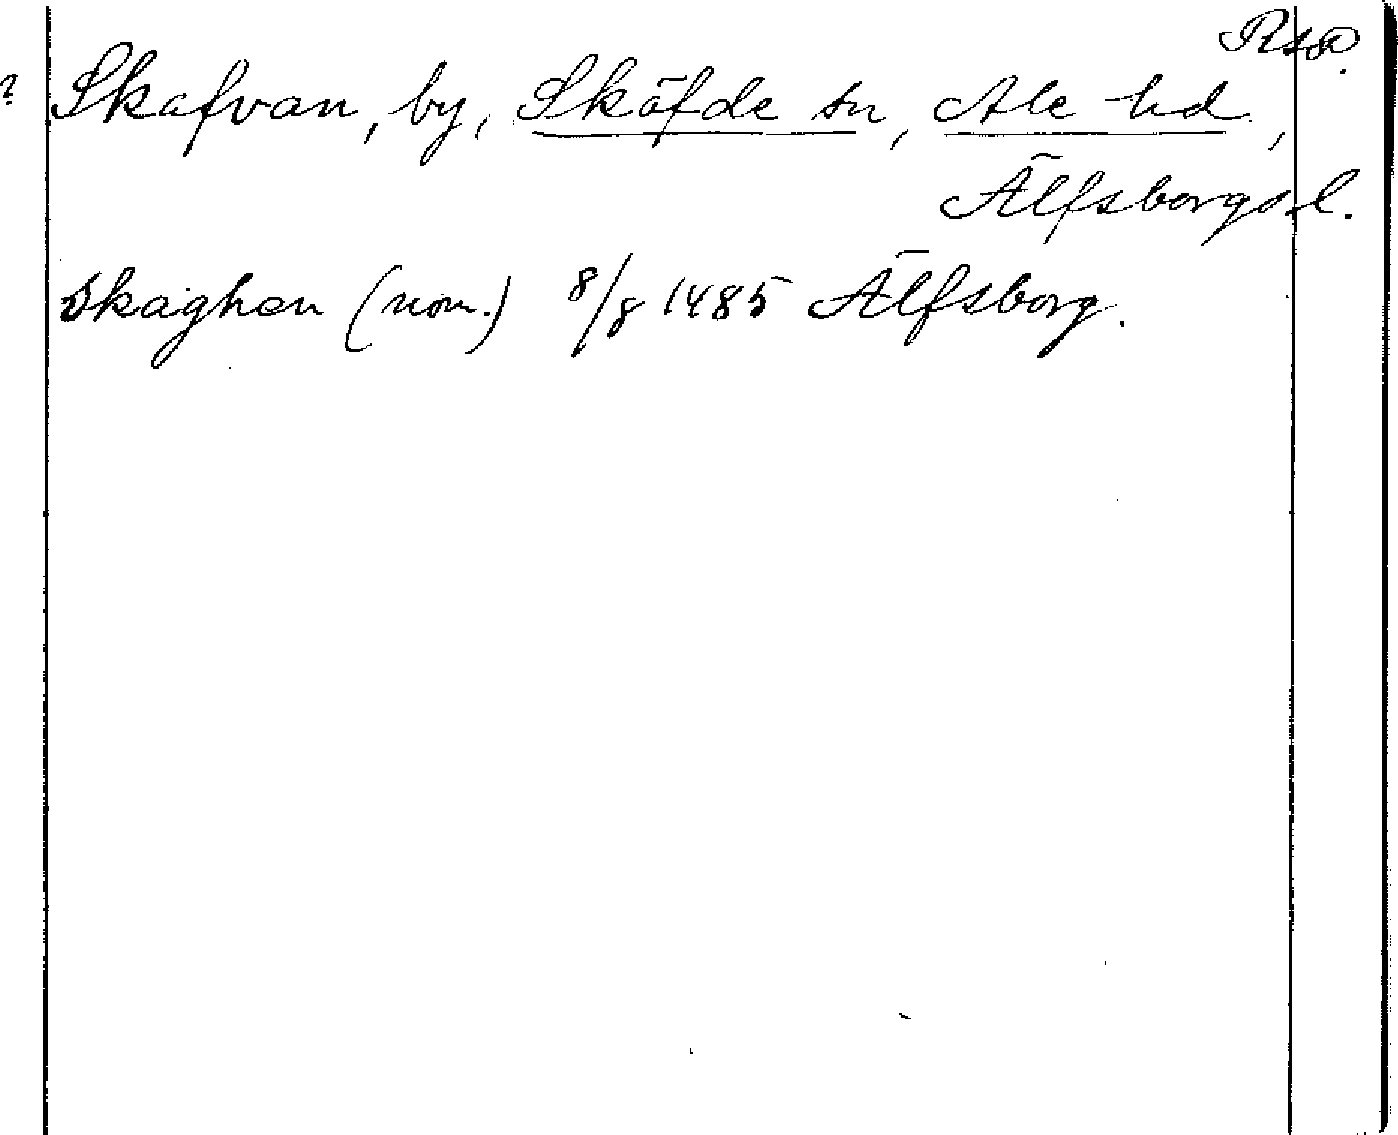 ? Skafvan, by, Sköfde sn, Ale hd,
Älfsborgs l.
Skaghen (nom.) 8/8 1485 Älfsborg.